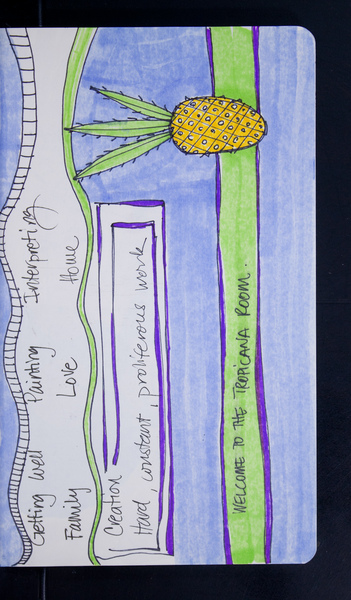 Getting Well Painting Interpreting
Family Love Home
Creation
Hard, constant, proliferous work
WELCOME TO THE TROPICANA ROOM.